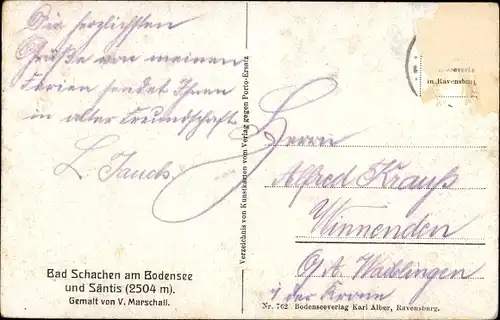 Die herzlichsten
Grüße von meinen
Ferien sendet Ihnen
in alter Freundschaft
L. Jauch
Bad Schachen am Bodensee
und Säntis (2504 m).
Gemalt von V. Marschall.
Verzeichnis von Kunstkarten vom Verlag gegen Porto-Ersatz
in Ravensburg
Herrn
Alfred Krauß
Winnenden
O/A. Waiblingen
z. der Krone
Nr. 762 Bodenseeverlag Karl Alber, Ravensburg.